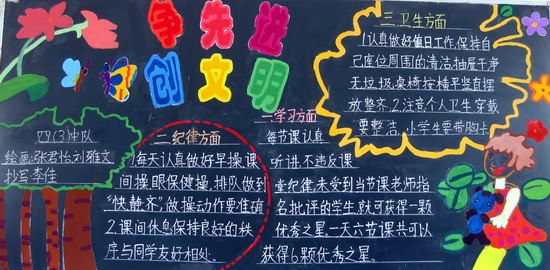 争先进
创文明
四(3)中队
绘画:张君怡刘雅文
抄写:李佳
一.学习方面
每节课认真
听讲,不违反课
堂纪律,未受到当节课老师指
名批评的学生,就可获得一颗
优秀之星.一天六节课共可以
获得6颗优秀之星.
二.纪律方面
1每天认真做好早操、课
间操、眼保健操,排队做到
“快静齐”,做操动作要准确
2.课间休息保持良好的秩
序,与同学友好相处.
三.卫生方面
1认真做好值日工作,保持自
己座位周围的清洁,抽屉干净
无垃圾,桌椅按横平竖直摆
放整齐.2.注意个人卫生,穿戴
要整洁,小学生要带胸卡.